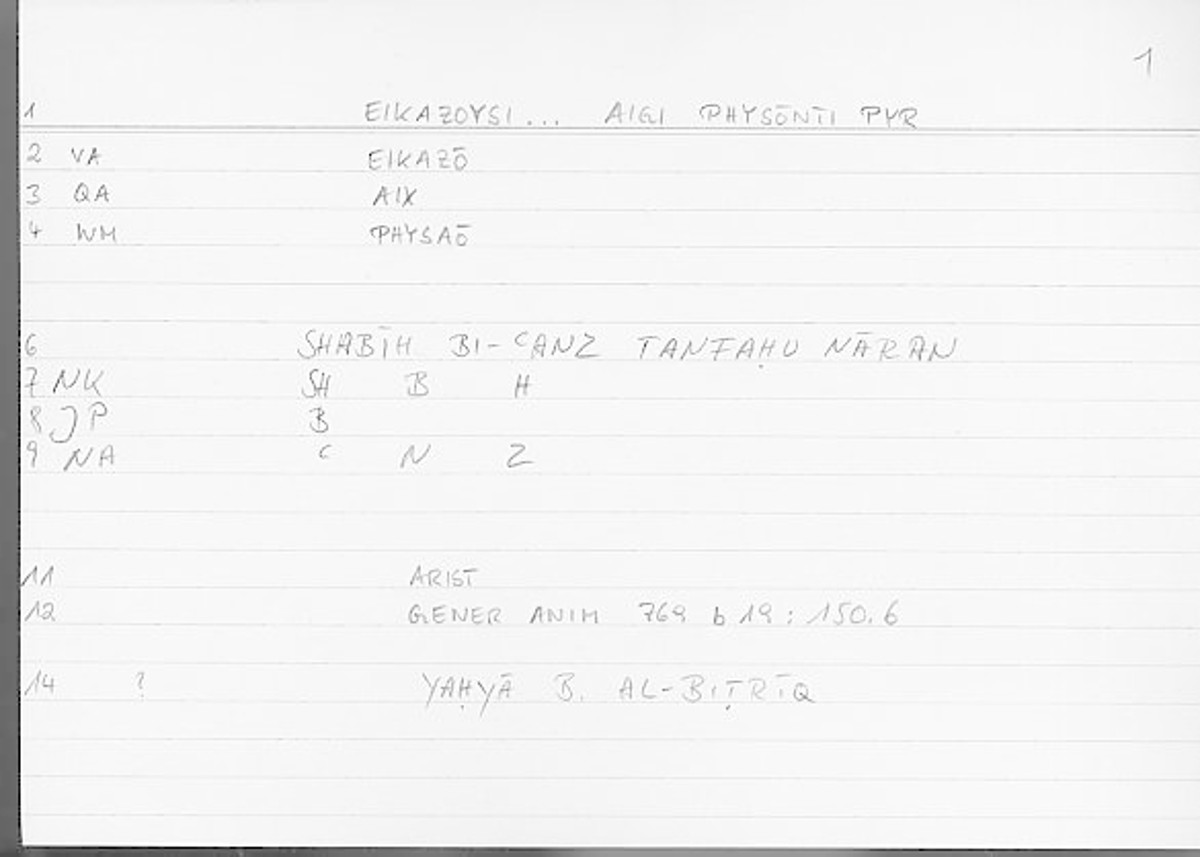 1
1 EIKAZOYSI... AIGI PHYSŌNTI PYR
2 VA EIKAZŌ
3 QA AIX
4 WM PHYSAŌ
6 SHABĪH BI-ᶜANZ TANFAḤU NĀRAN
7 NK SH B H
8 JP B
9 NA ᶜ N Z
11 ARIST
12 GENER ANIM 769 b 19 : 150.6
14 ? YAḤYĀ B. AL-BIṬRĪQ